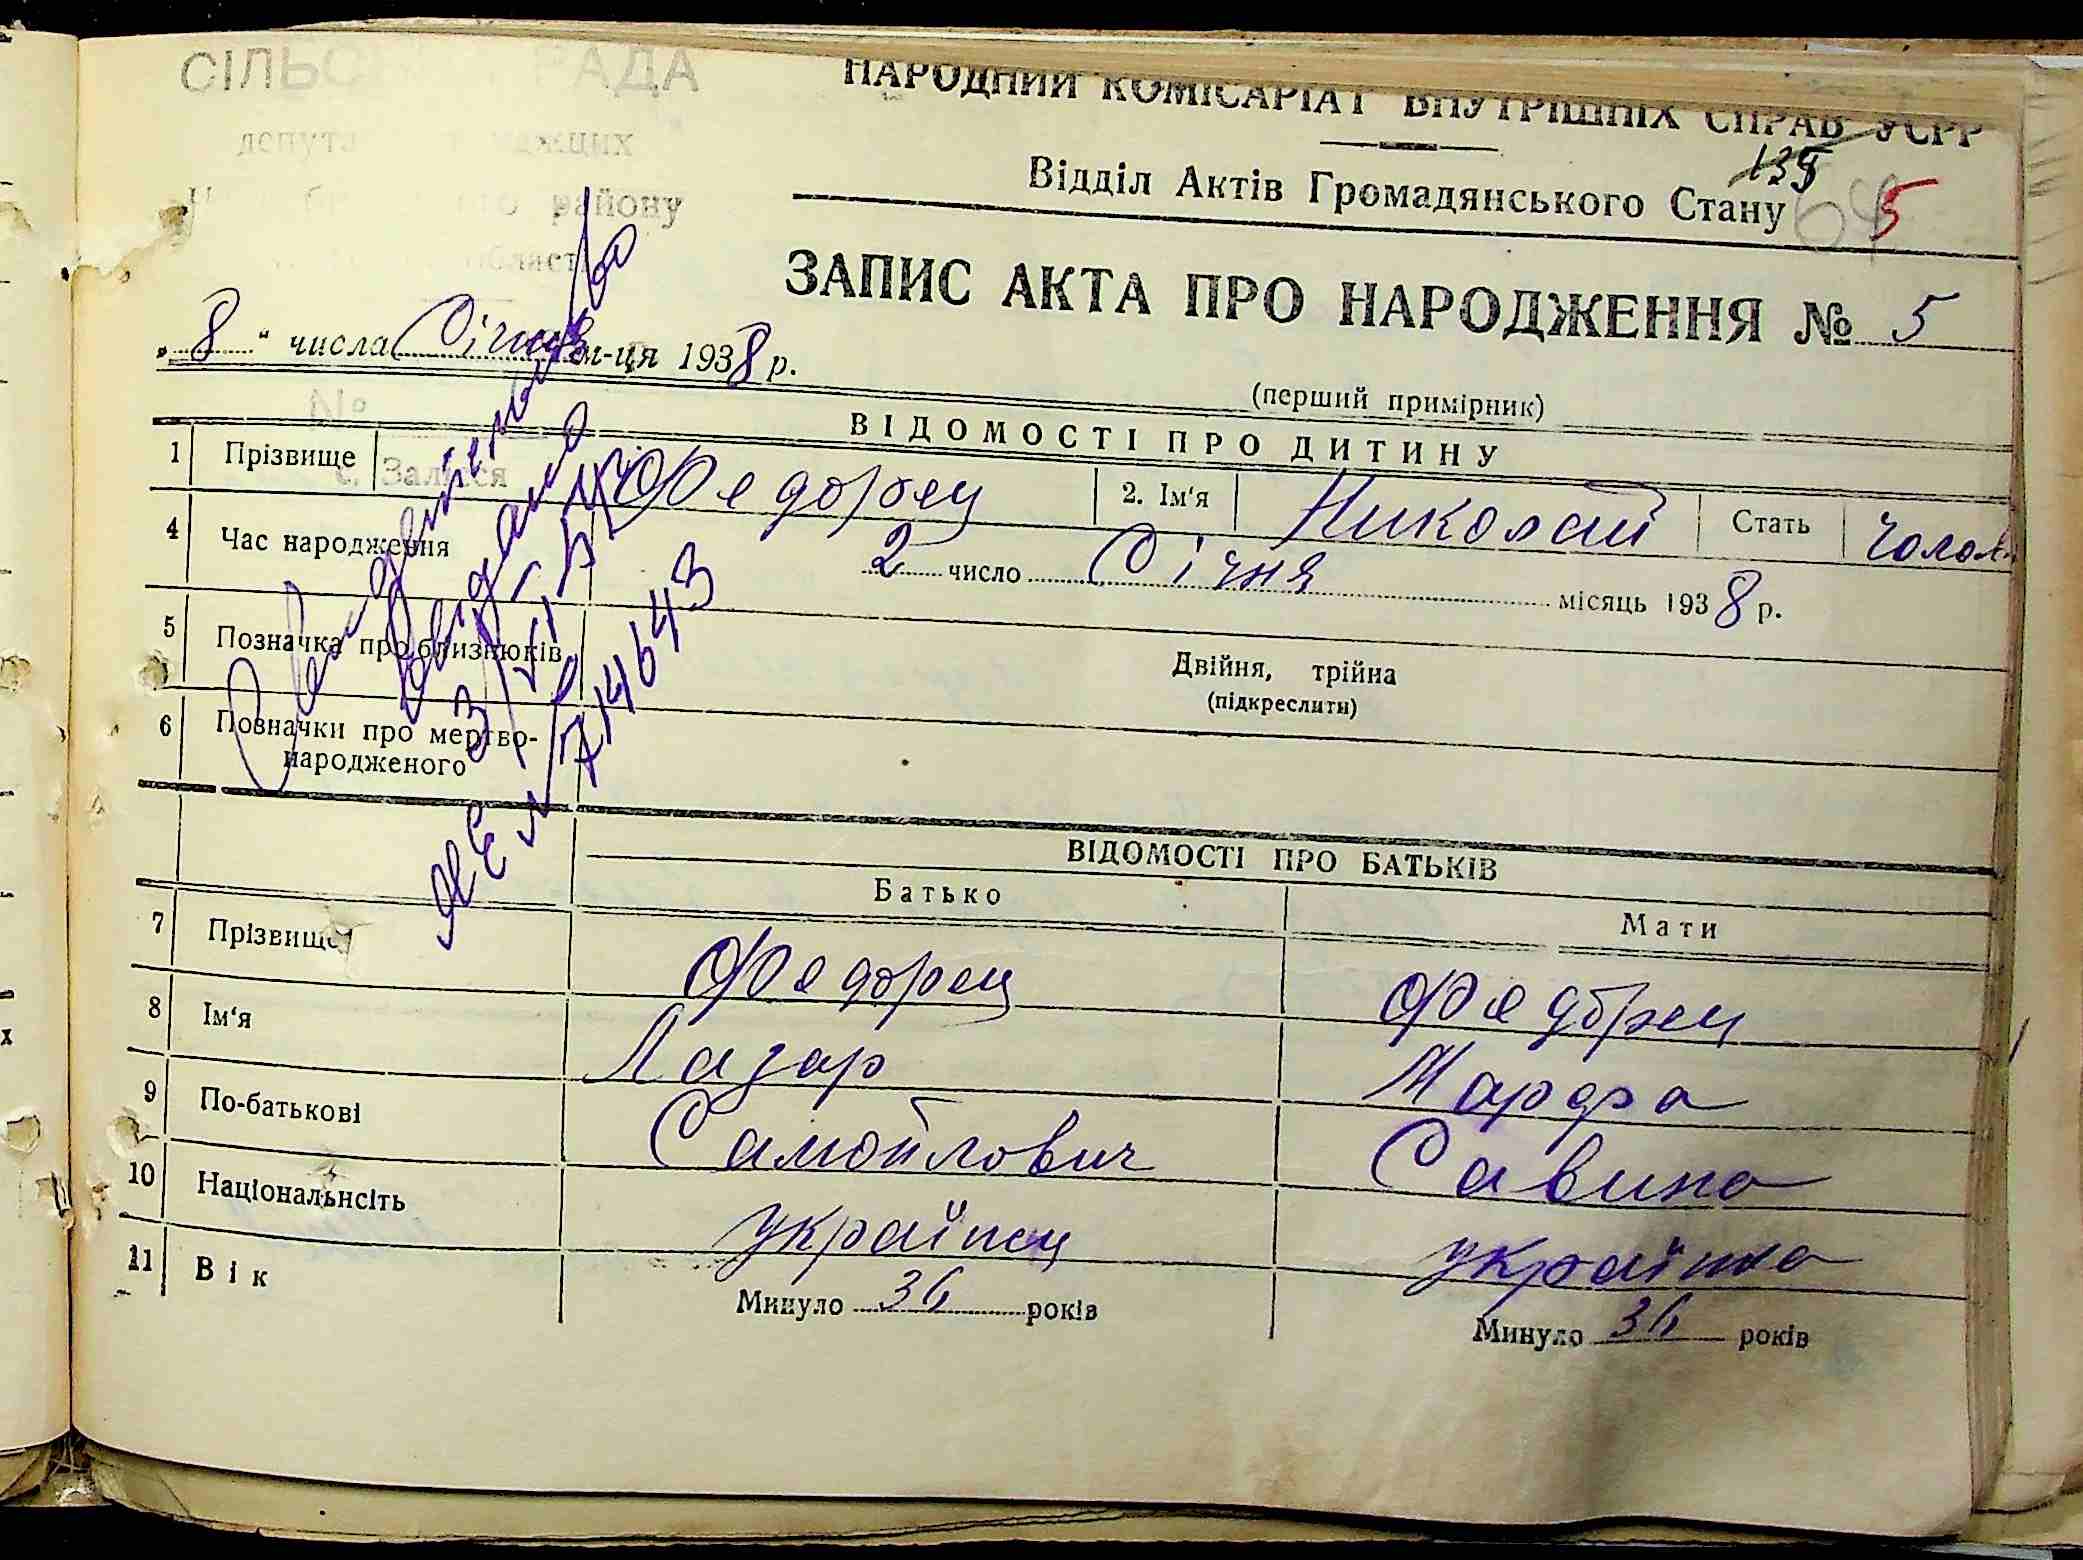 СІЛЬСЬКА РАДА
району
НАРОДНИЙ КОМІСАРІАТ ВНУТРІШНІХ СПРАВ УСРР
Відділ Актів Громадянського Стану
135
5
ЗАПИС АКТА ПРО НАРОДЖЕННЯ № 5
„8“ числа Січня м-ця 1938 р.
(перший примірник)
№
с. Залісся
ВІДОМОСТІ ПРО ДИТИНУ
1 Прізвище Федорец 2. Ім'я Николай Стать чолов
4 Час народження 2 число Січня місяць 1938 р.
5 Позначка про близнюків Двійня, трійна
(підкреслити)
6 Позначки про мертво-
народженого
Свидетельство
выдано
ЯЕ № 714643
ВІДОМОСТІ ПРО БАТЬКІВ
Батько Мати
7 Прізвище Федорец Федорец
8 Ім'я Лазар Марфа
9 По-батькові Самойлович Савина
10 Національнсіть українец українка
11 Вік Минуло 36 років Минуло 36 років